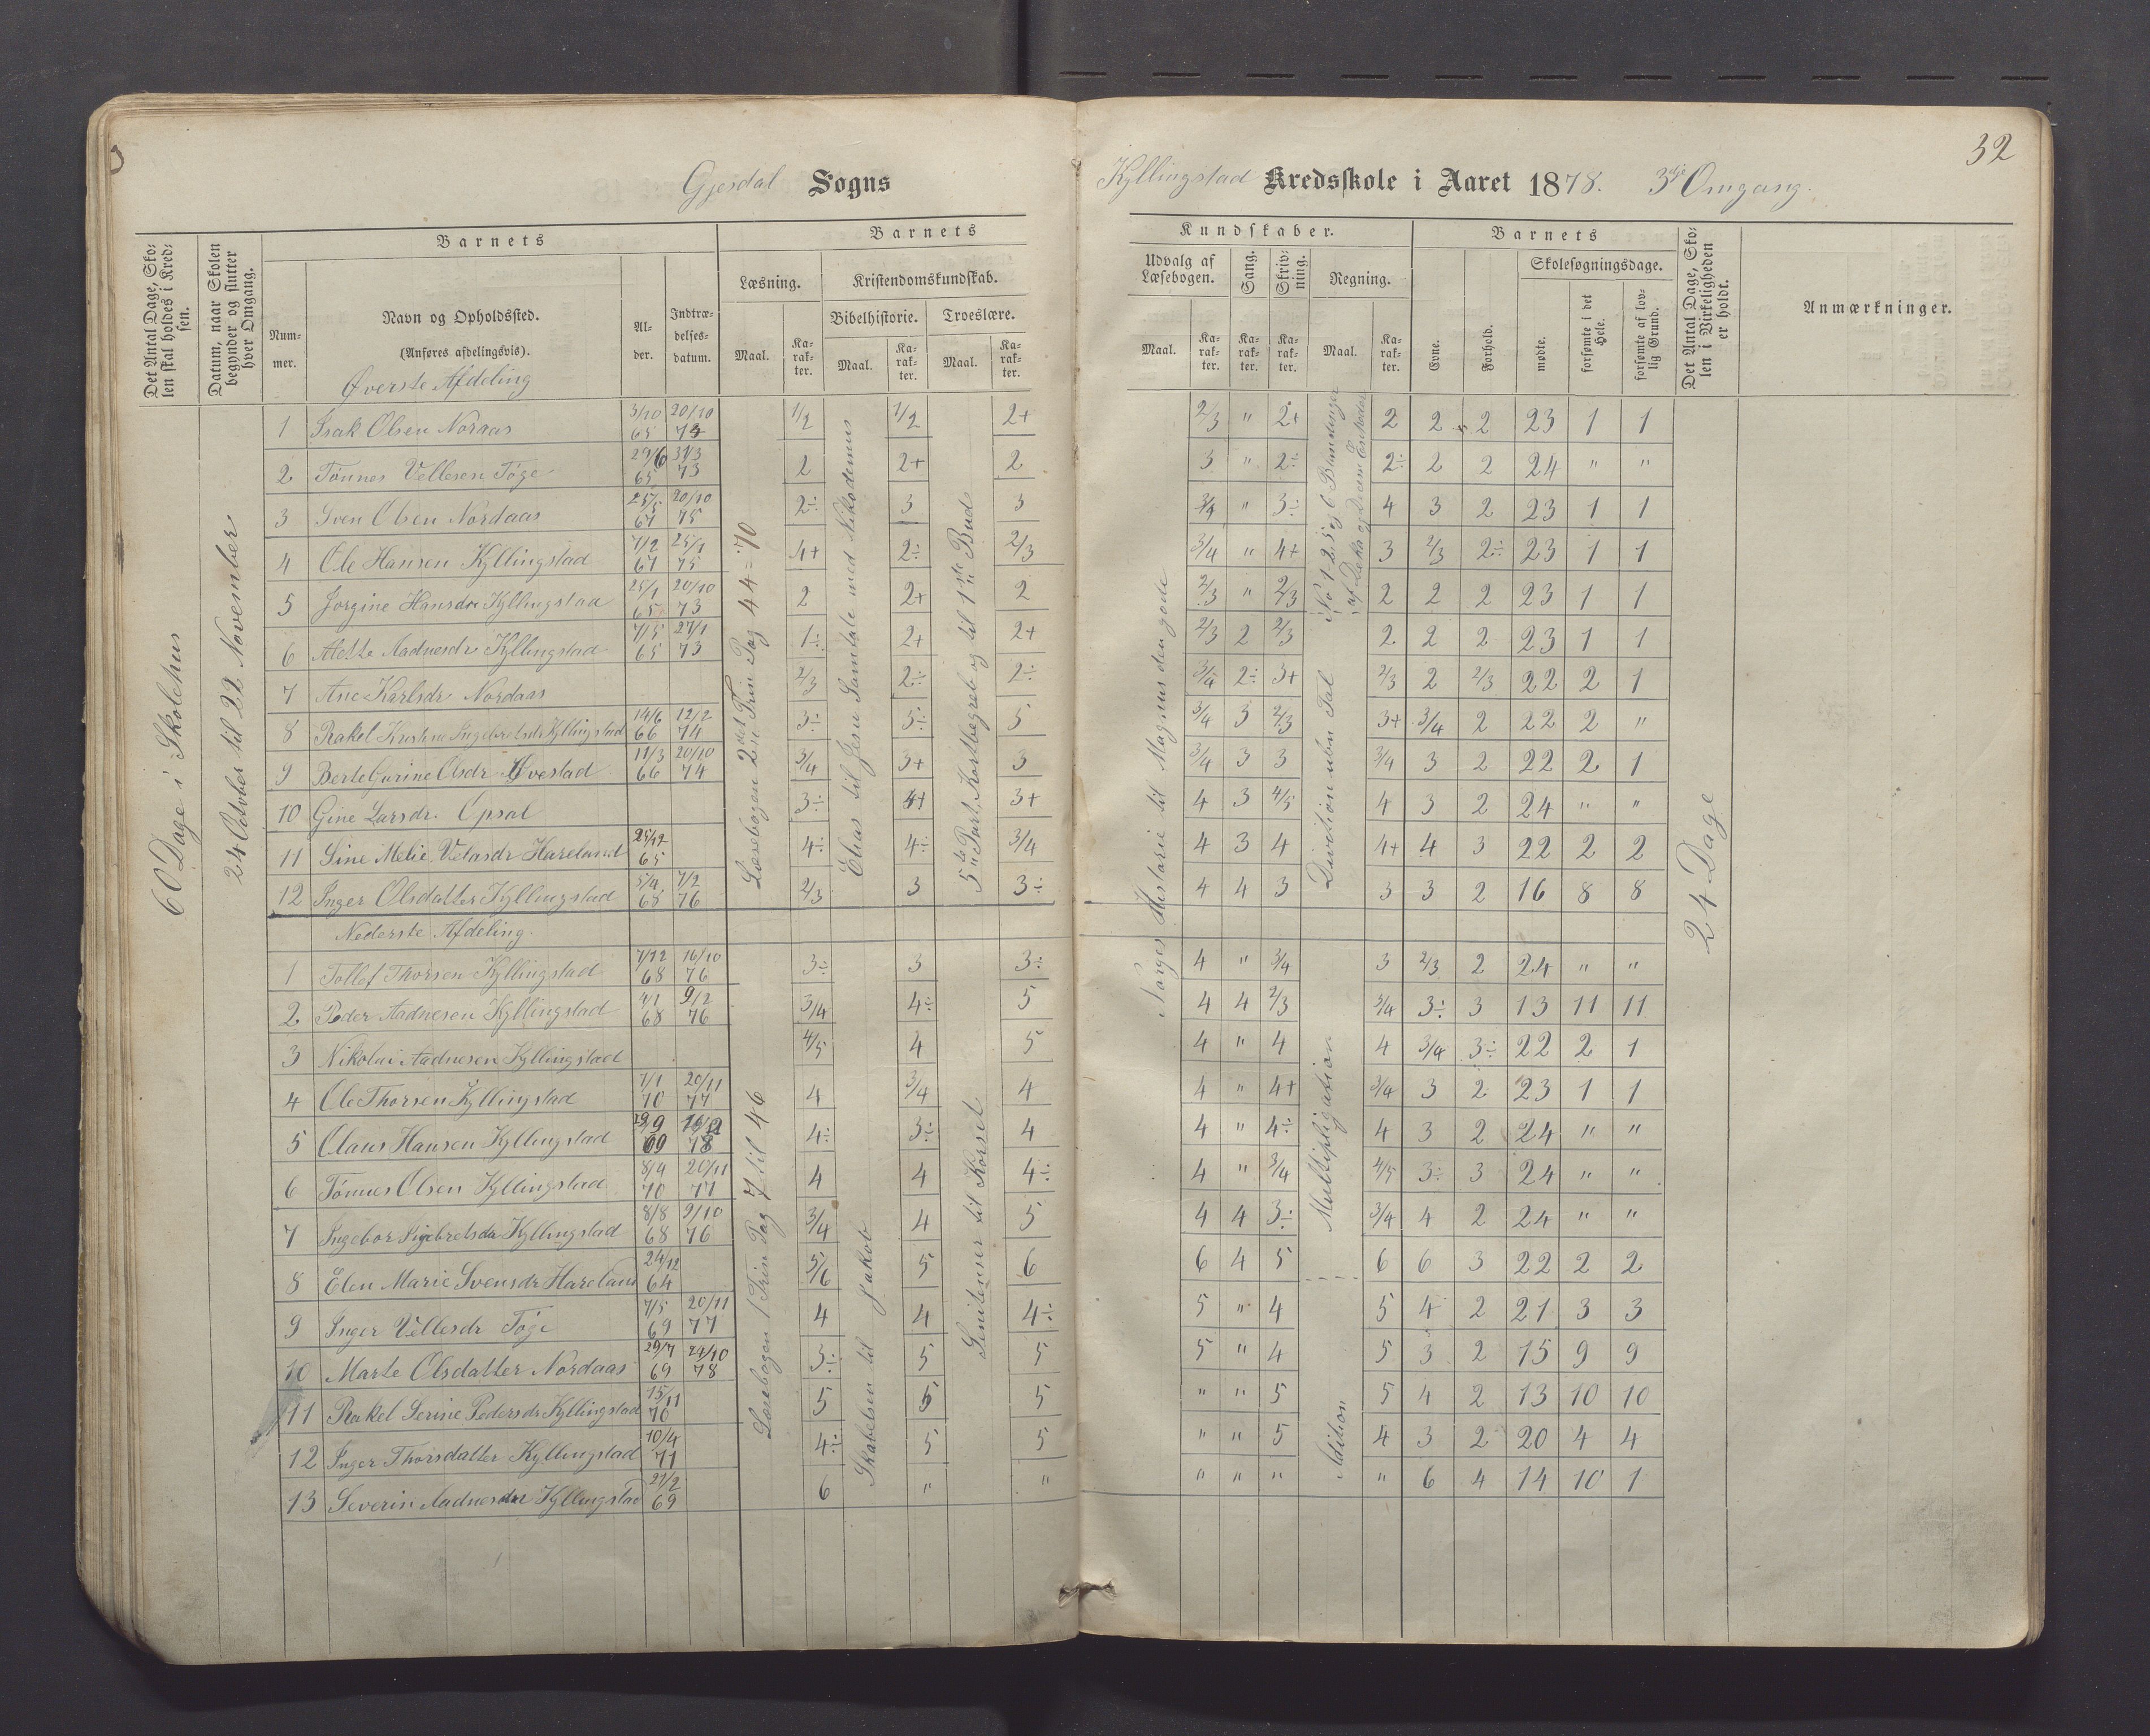 32
Gjesdal Sogns Kyllingstad Kredsskole i Aaret 1878. 3die Omgang.
Det Antal Dage, Skolen skal holdes i Kredsen.
Datum, naar Skolen begynder og slutter hver Omgang.
Barnets
Nummer.
Navn og Opholdssted.
(Anføres afdelingsvis).
Alder.
Indtrædelsesdatum.
Barnets Kundskaber.
Læsning.
Maal.
Karakter.
Kristendomskundskab.
Bibelhistorie.
Maal.
Karakter.
Troeslære.
Maal.
Karakter.
Udvalg af Læsebogen.
Maal.
Karakter.
Sang.
Karakter.
Skrivning.
Karakter.
Regning.
Maal.
Karakter.
Barnets
Evne.
Forhold.
Skolesøgningsdage.
mødte.
forsømte i det Hele.
forsømte af lovlig Grund.
Det Antal Dage, Skolen i Virkeligheden er holdt.
Anmærkninger.
60 Dage i Skolehus
24 October til 22 November
Læsebogen 2det Trin Pag 44 = 70
Elias til Jesu Samtale med Nikodemus
5te Part, Kortbegreb og til 1ste Bud
Norges Historie til Magnus den gode
Division uben Tal
24 Dage
Øverste Afdeling
1 Isak Olsen Nordaas 3/10 65 20/10 74 1/2 1/2 2+ 2/3 " 2+ 2 2 2 23 1 1
2 Tønnes Vellesen Tøge 29/6 65 31/3 73 2 2+ 2 3 " 2÷ 2÷ 2 2 24 " "
3 Sven Olsen Nordaas 25/5 67 20/10 75 2÷ 3 3 3/4 " 3÷ 4 3 2 23 1 1
4 Ole Hansen Kyllingstad 7/2 67 25/1 75 4+ 2÷ 2/3 3/4 " 4+ 3 2/3 2÷ 23 1 1
5 Jorgine Hansdr Kyllingstad 25/1 65 20/10 73 2 2+ 2 2/3 " 2/3 2 2 2 23 1 1
6 Alette Aadnesdr Kyllingstad 7/5 65 27/1 73 1÷ 2+ 2+ 2/3 2 2/3 2 2 2 23 1 1
7 Ane Karlsdr Nordaas 2/3 2÷ 2÷ 3/4 2÷ 3+ 2/3 2 2/3 22 2 1
8 Rakel Kristine Ingebretsdr Kyllingstad 14/6 66 12/2 74 3÷ 5÷ 5 3/4 3 2/3 3+ 3/4 2 22 2 "
9 Berte Gurine Olsdr Øvestad 11/3 66 20/10 74 3/4 3+ 3 3/4 3 3 3/4 3 2 22 2 1
10 Gine Larsdr. Opsal 3÷ 4+ 3+ 4 3 4/5 4 3 2 24 " "
11 Sine Melie Vetasdr Hareland 25/12 65 4÷ 4÷ 3/4 4 3 4 4+ 4 3 22 2 2
12 Inger Olsdatter Kyllingstad 5/4 65 7/2 76 2/3 3 3÷ 4 4 3 3 3 2 16 8 8
Nederste Afdeling.
Læsebogen 1 Trin Pag 7 til 46
Skabelsen til Jakob
Senitenser til Korset
Multipligation
Adition
1 Tollef Thorsen Kyllingstad 7/12 68 16/10 76 3÷ 3 3÷ 4 " 3/4 3 2/3 2 24 " "
2 Peder Aadnesen Kyllingstad 4/1 68 9/2 76 3/4 4÷ 5 4 4 2/3 3/4 3÷ 3 13 11 11
3 Nikolai Aadnesen Kyllingstad 4/5 4 5 4 " 4 4 3/4 3÷ 22 2 1
4 Ole Thorsen Kyllingstad 7/1 70 20/11 77 4 3/4 4 4 " 4+ 3/4 3 2 23 1 1
5 Claus Hansen Kyllingstad 29/9 69 78 4÷ 3÷ 4 4 " 4÷ 4 3 2 24 " "
6 Tønnes Olsen Kyllingstad 8/4 70 20/11 77 4 4 4÷ 4 " 3/4 4/5 3÷ 3 24 " "
7 Ingebor Sigebretsdr Kyllingstad 8/8 68 9/10 76 3/4 4 5 4 4 3÷ 3/4 4 2 24 " "
8 Elen Marie Svensdr Hareland 24/12 64 5/6 5 6 6 4 5 6 6 3 22 2 2
9 Inger Vellesdr Tøge 7/5 69 20/11 77 4 4 4÷ 5 " 4 5 4 2 21 3 3
10 Marte Olsdatter Nordaas 29/7 69 24/10 78 3÷ 5 5 5 " 4 5 3 2 15 9 9
11 Rakel Serine Pedersdr Kyllingstad 15/11 70 5 5 5 " " 5 5 4 2 13 10 10
12 Inger Thorsdatter Kyllingstad 10/4 71 4÷ 5 5 " " 5 4 3 2 20 4 4
13 Severin Aadnesdtr Kyllingstad 21/2 69 6 " " " " " " 6 4 14 10 1